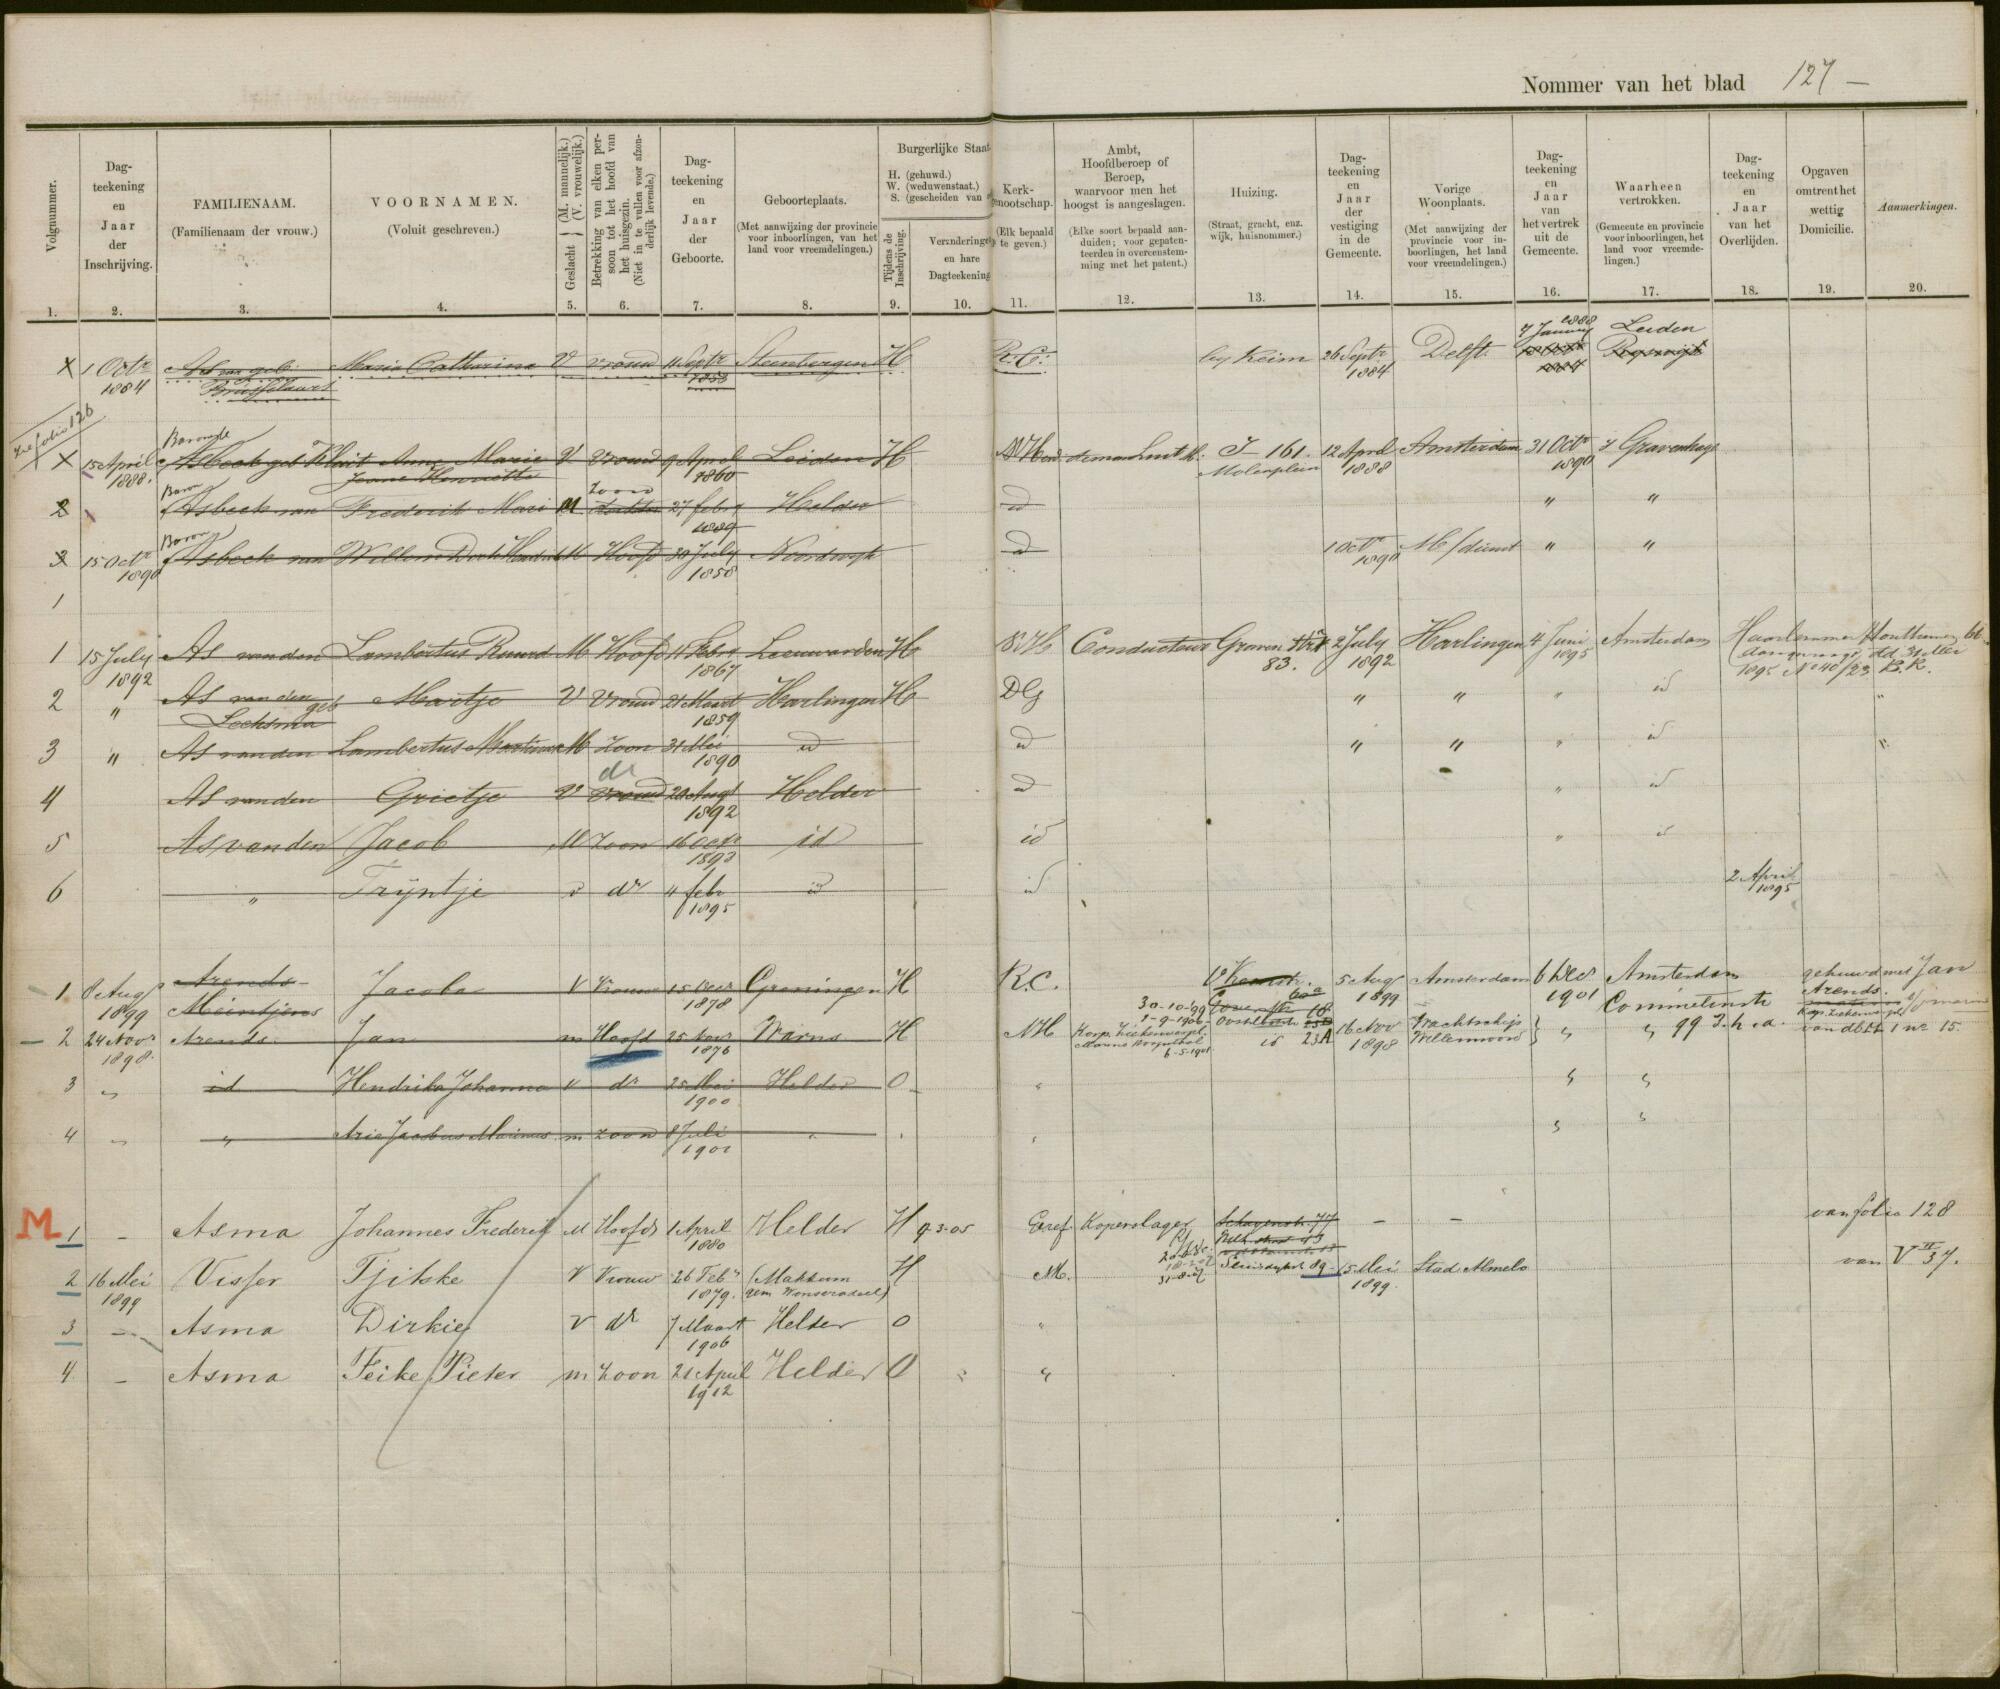 Nommer van het blad 127
Volgnummer.
Dag-
teekening
en
Jaar
der
Inschrijving.
FAMILIENAAM.
(Familienaam der vrouw.)
VOORNAMEN.
(Voluit geschreven.)
Geslacht (M. mannelijk.) (V. vrouwelijk.)
Betrekking van elken per-
soon tot het hoofd van
het huisgezin.
(Niet in te vullen voor afzon-
derlijk levende.)
Dag-
teekening
en
Jaar
der
Geboorte.
Geboorteplaats.
(Met aanwijzing der provincie
voor inboorlingen, van het
land voor vreemdelingen.)
Burgerlijke Staat
H. (gehuwd.)
W. (weduwenstaat.)
S. (gescheiden van
Tijdens de
Inschrijving.
Veranderingen
en hare
Dagteekening
Kerk-
genootschap.
(Elk bepaald
te geven.)
Ambt,
Hoofdberoep of
Beroep,
waarvoor men het
hoogst is aangeslagen.
(Elke soort bepaald aan-
duiden; voor gepaten-
teerden in overeenstem-
ming met het patent.)
Huizing.
(Straat, gracht, enz.
wijk, huisnommer.)
Dag-
teekening
en
Jaar
der
vestiging
in de
Gemeente.
Vorige
Woonplaats.
(Met aanwijzing der
provincie voor in-
boorlingen, het land
voor vreemdelingen.)
Dag-
teekening
en
Jaar
van
het vertrek
uit de
Gemeente.
Waarheen
vertrokken.
(Gemeente en provincie
voor inboorlingen, het
land voor vreemde-
lingen.)
Dag-
teekening
en
Jaar
van het
Overlijden.
Opgaven
omtrent het
wettig
Domicilie.
Aanmerkingen.
1. 2. 3. 4. 5. 6. 7. 8. 9. 10. 11. 12. 13. 14. 15. 16. 17. 18. 19. 20.
7 January 1888 Leiden
X 1 Octr 1884 As van geb. Maria Catharina V Vrouw 11 Septr 1853 Steenbergen H R.C. by Keim 26 Septr 1884 Delft
zie folio 126
X 15 April 1888. Asbeck geb Anna Marie V Vrouw 9 April 1860 Leiden H J 161. Molenplein 12 April 1888 Amsterdam 31 Octr 1890 Gravenhage
Jeane Henriette
Baron
2 Asbeck van Frederik Mari M Zoon 27 febr 1889 Helder id " "
Baron
3 15 Octr 1890 Asbeck van Willem M Hoofd 30 July 1858 Noordwijk id 1 Octr 1890 M/dienst " "
1
1 15 July 1892 As van den Lambertus Ruurd M Hoofd 11 Febr 1867 Leeuwarden H NH Conducteur Graven Strt 83. 2 July 1892 Harlingen 4 Juni 1895 Amsterdam Haarlemmer Houttuinen
aangevraagd dd 31 Mei
1895 No 40/23 B.R.
2 " As van den geb Martje V Vrouw 21 Maart 1859 Harlingen H DG " " " id "
3 " As van den Lambertus M Zoon 31 Mei 1890 id id " " " id "
4 As van den Grietje V dr 20 Augt 1892 Helder id " id
5 As van den Jacob M Zoon 16 Octr 1893 id id " id
6 " Trijntje v dr 4 febr 1895 id id 2 April 1895
1 8 Aug 1899 Arends Meintjens Jacoba V Vrouw 15 Decr 1878 Groningen H R.C. 5 Aug 1899 Amsterdam 6 Decr 1901 Amsterdam gehuwd met Jan Arends.
30-10-'99
1-9-1900
2 24 Novr 1898. Arends Jan m Hoofd 25 Novr 1876 Warns H NH id 23A 16 Nov 1898 Wachtschip Willemsoord " "
6-5-1901
3 " id Hendrika Johanna v dr 25 Mei 1900 Helder O " " "
4 " " Arie Jacobus Marinus m Zoon 8 Juli 1901 " " " " "
M
1 - Asma Johannes Frederik M Hoofd 1 April 1880 Helder H 9-3-05 Geref Koperslager Schagenstr. 77 - - van folio 128
2 16 Mei 1899 Visser Tjitske V Vrouw 26 Febr 1879. (Makkum gem Wonseradeel) H 89 15 Mei 1899. Stad Almelo van V II 37.
3 - Asma Dirkje V dr 7 Maart 1906 Helder O "
4 - Asma Feike Pieter m Zoon 21 April 1912 Helder O " "